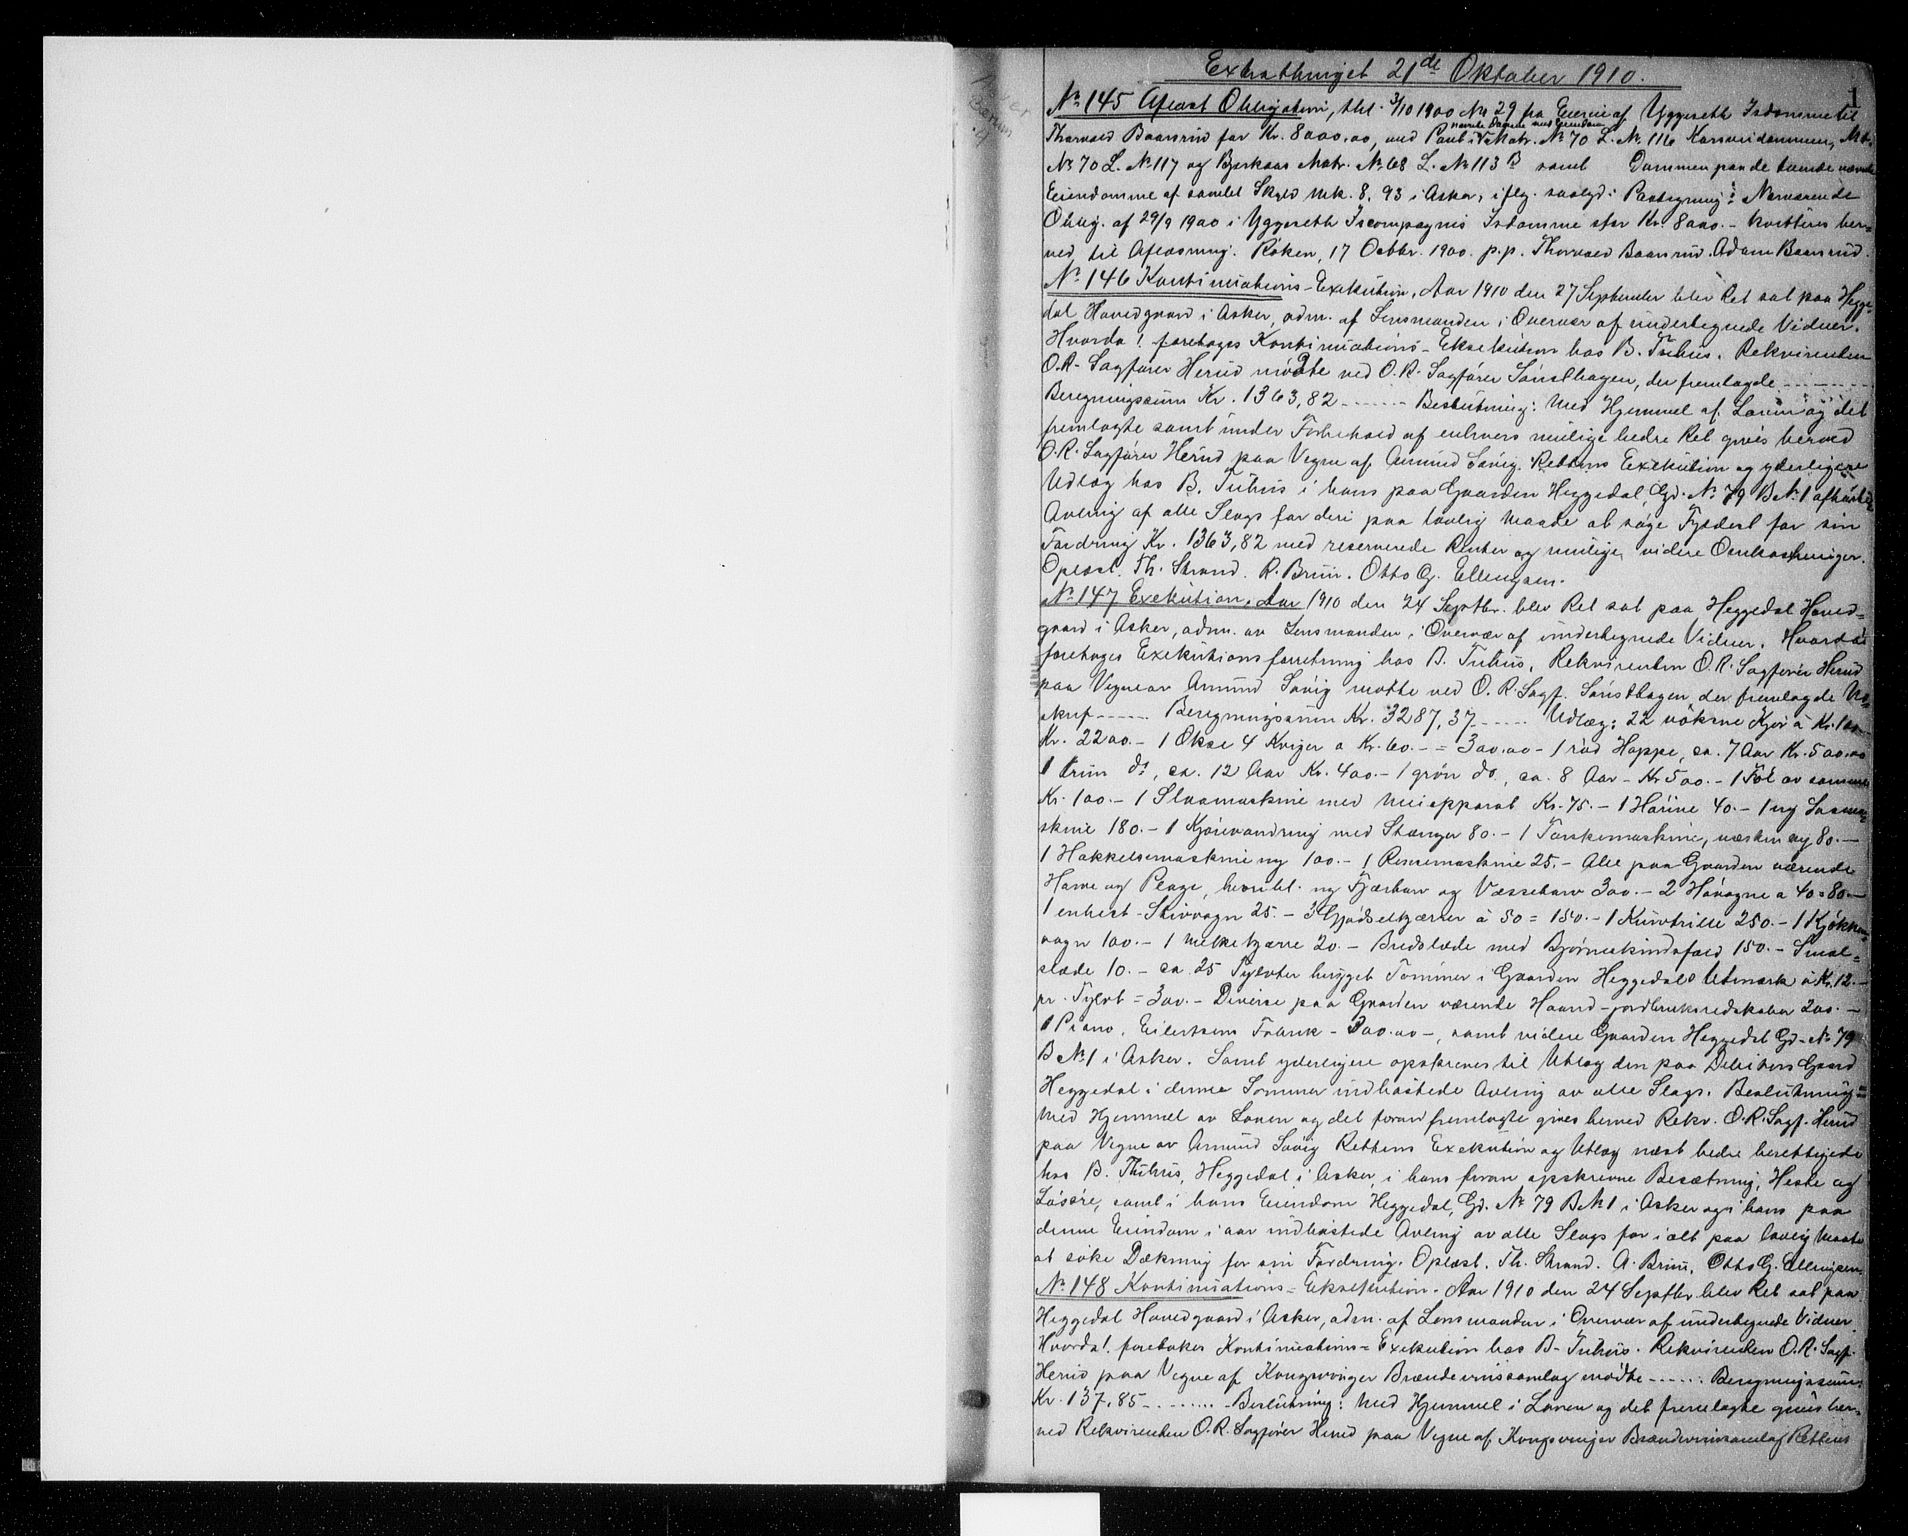 1
Extrathinget 21de Oktober 1910.
No 145 Aflæst Obligation, thl. 3/10 1900 No 29 fra Eierne af Yggeseth Isdamme til
Thorvald Baarsrud for Kr. 8000.00, med Pant i Matr. No 70 L. No 116 Karsvedammen, Mtr.
No 70 L. No 117 og Bjerkaas Matr. No 68 L. No 113 B samt Dammen paa de
Eiendomme af samlet Skyld Mk. 8,93 i Asker, iflg. saalyd. Paategning: Nærværende
Oblig. af 29/9 1900 i Yggeseth Iscompagnis Isdamme stor Kr. 8000.- kvitteres her-
ved til Aflæsning. Røken, 17 Octbr. 1900. p.p. Thorvald Baarsrud. Adam Baarsrud.
No 146 Kontinuations-Exekution. Aar 1910 den 27 September blev Ret sat paa Hegge-
dal Hovedgaard i Asker, adm. af Lensmanden i Overvær af undertegnede Vidner.
Hvorda! foretoges Kontinuations-Eksekution hos B. Tuhus. Rekvirenten
O.R. Sagfører Herud mødte ved O.R. Sagfører Sønsthagen, der fremlagde -------
Beregningssum Kr. 1363,82 ------- Beslutning: Med Hjemmel af Loven og det
fremlagte samt under Forbehold af enhvers mulige bedre Ret gives herved
O.R. Sagfører Herud paa Vegne af Amund Søvig Rettens Exekution og yderligere
Udlæg hos B. Tuhus i hans paa Gaarden Heggedal, Gd. No 79 B No 1 afhøstede
Avling af alle Slags for deri paa lovlig Maade at søge Fyldest for sin
Fordring Kr. 1363,82 med reserverede Renter og mulige videre Omkostninger.
Oplæst. Th. Strand. R. Bruu. Otto G. Ellingsen.
No 147 Exekution. Aar 1910 den 24 Septbr. blev Ret sat paa Heggedal Hoved-
gaard i Asker, adm. av Lensmanden i Overvær af undertegnede Vidner. Hvorda!
foretoges Exekutionsforretning hos B. Tuhus. Rekvirenten O.R. Sagfører Herud
paa Vegne av Amund Søvig mødte ved O.R. Sagf. Sønsthagen, der fremlagde Ud-
skrif ------ Beregningssum Kr. 3287,37 ------ Udlæg: 22 voksne Kjør à Kr. 100.-
Kr. 2200.- 1 Okse 4 Kviger a Kr. 60.- = 300.00 - 1 rød Hoppe, ca. 7 Aar Kr. 500.00
1 brun do, ca. 12 Aar Kr. 400.- 1 grøn do, ca. 8 Aar - Kr 500.- 1 Føl av samme
Kr. 100.- 1 Slaamaskine med Meiapparat Kr. 75.- 1 Hørive 40.- 1 ny Saama-
skine 180.- 1 Kjørevandring med Stænger 80.- 1 Tærskemaskine, næsten ny 80.-
1 Hakkelsemaskine ny 100.- 1 Rensemaskine 25.- Alle paa Gaarden værende
Harve og Ploge, heribl. ny Fjærharv og Væsseharv 300.- 2 Høvogne a 40 = 80.-
1 enhest. Stivvogn 25.- 3 Gjødselkjærrer à 50 = 150.- 1 Kurvtrille 250.- 1 Kjøkken-
vogn 100.- 1 Melkekjærre 20.- Bredslæde med Bjørneskindsfæld 150.- Smal-
slæde 10.- ca 25 Tylvter hugget Tømmer i Gaarden Heggedals Utmark à Kr. 12.-
pr. Tylvt = 300.- Diverse paa Gaarden værende Haand-jordbruksredskaber 200.-
1 Piano, Eilertsens Fabrik - 300.00 -, samt videre Gaarden Heggedal Gd. No 79
B No 1 i Asker. Samt yderligere opskreves til Utlæg den paa Debitors Gaard
Heggedal i denne Sommer indhøstede Avling av alle Slags. Beslutning:
Med Hjemmel av Loven og det foran fremlagte gives herved Rekv. O.R. Sagf. Herud
paa Vegne av Amund Søvig Rettens Exekution og Utlæg næst bedre berettigede
hos B. Thuhus, Heggedal i Asker, i hans foran opskrevne Besætning, Heste og
Løsøre, samt i hans Eiendom Heggedal, Gd. No 79 B No 1 i Asker og i hans paa
denne Eiendom i aar indhøstede Avling av alle Slags for i alt paa lovlig Maate
at søke Dækning for sin Fordring. Oplæst. Th. Strand. A. Bruu. Otto G. Ellingsen.
No 148 Kontinuations-Eksekution. Aar 1910 den 24 Septbr blev Ret sat paa
Heggedal Hovedgaard i Asker, adm. af Lensmanden i Overvær af undertegnede Vidner.
Hvorda! foretokes Kontinuations-Exekution hos B. Tuhus. Rekvirenten O.R. Sagf.
Herud paa Vegne af Kongsvinger Brændevinssamlag mødte ------- Beregningssum
Kr. 137,85 --------- Beslutning: Med Hjemmel i Loven og det fremlagte gives her-
ved Rekvirenten O.R. Sagfører Herud paa Vegne af Kongsvinger Brændevinssamlag Rettens